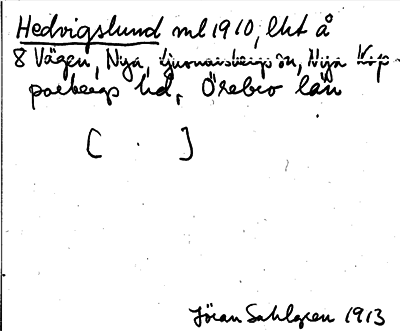 Hedvigslund ml 1910, lht å
8 Vägen, Nya, Ljusnarsbergs sn, Nya Kop-
parbergs hd, Örebro län
[ . ]
Jöran Sahlgren 1913